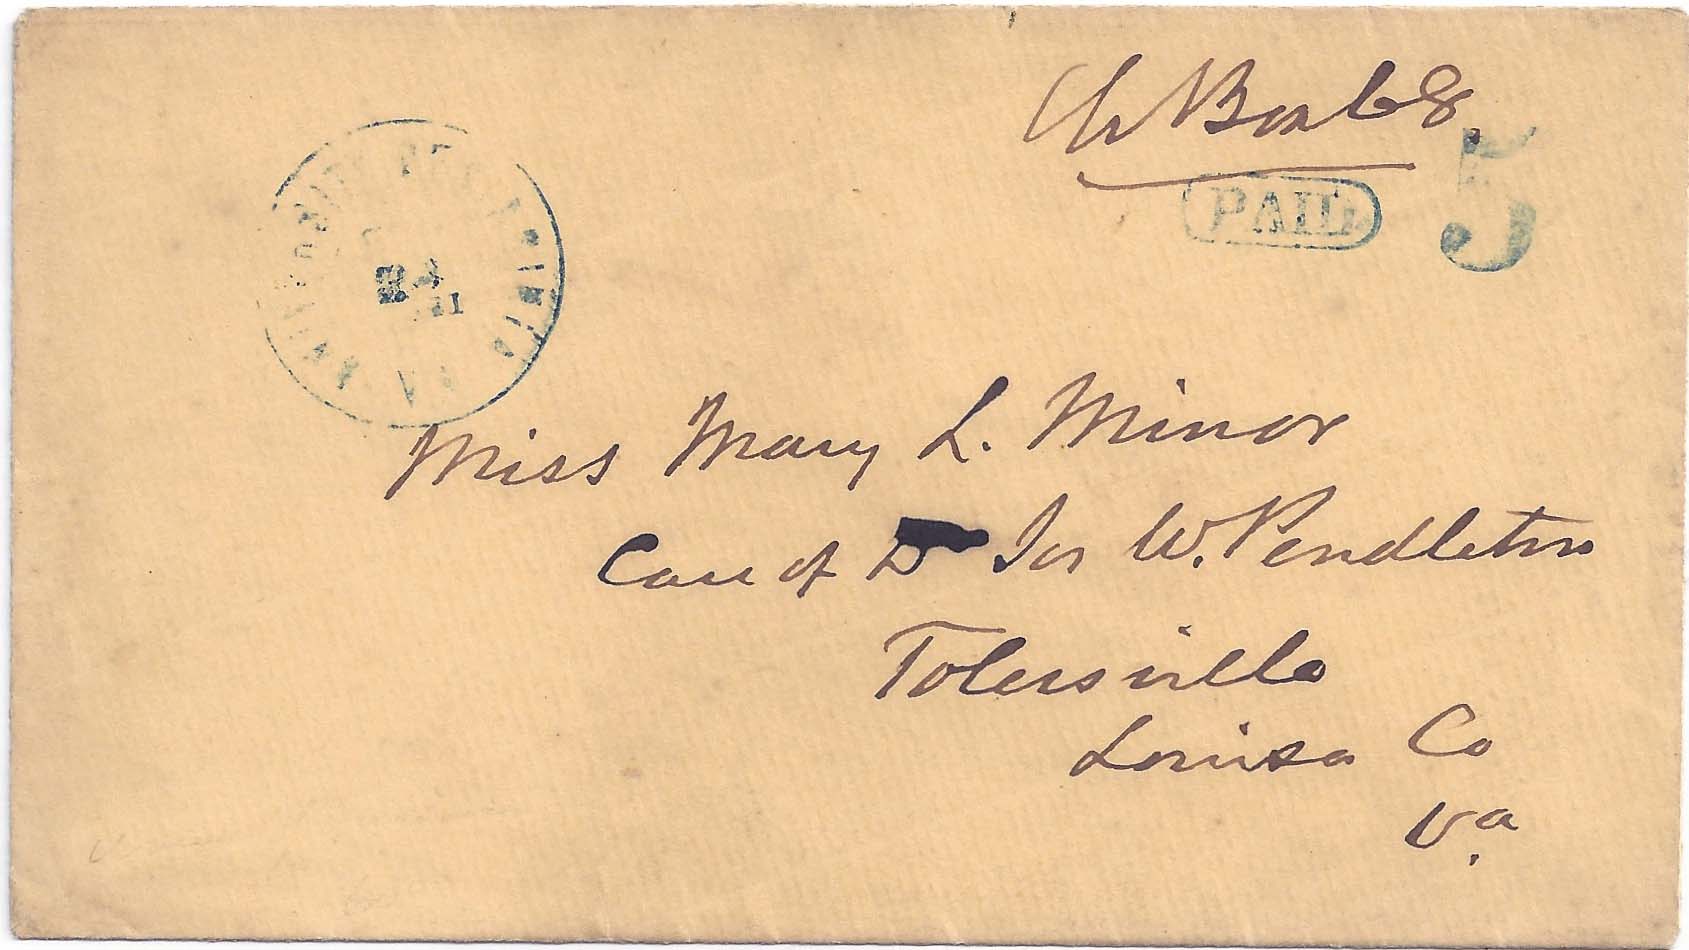 Ch Box 68
PAID 5
Miss Mary L. Minor
Care of Dr Jos W. Pendleton
Tolersville
Louisa Co
Va